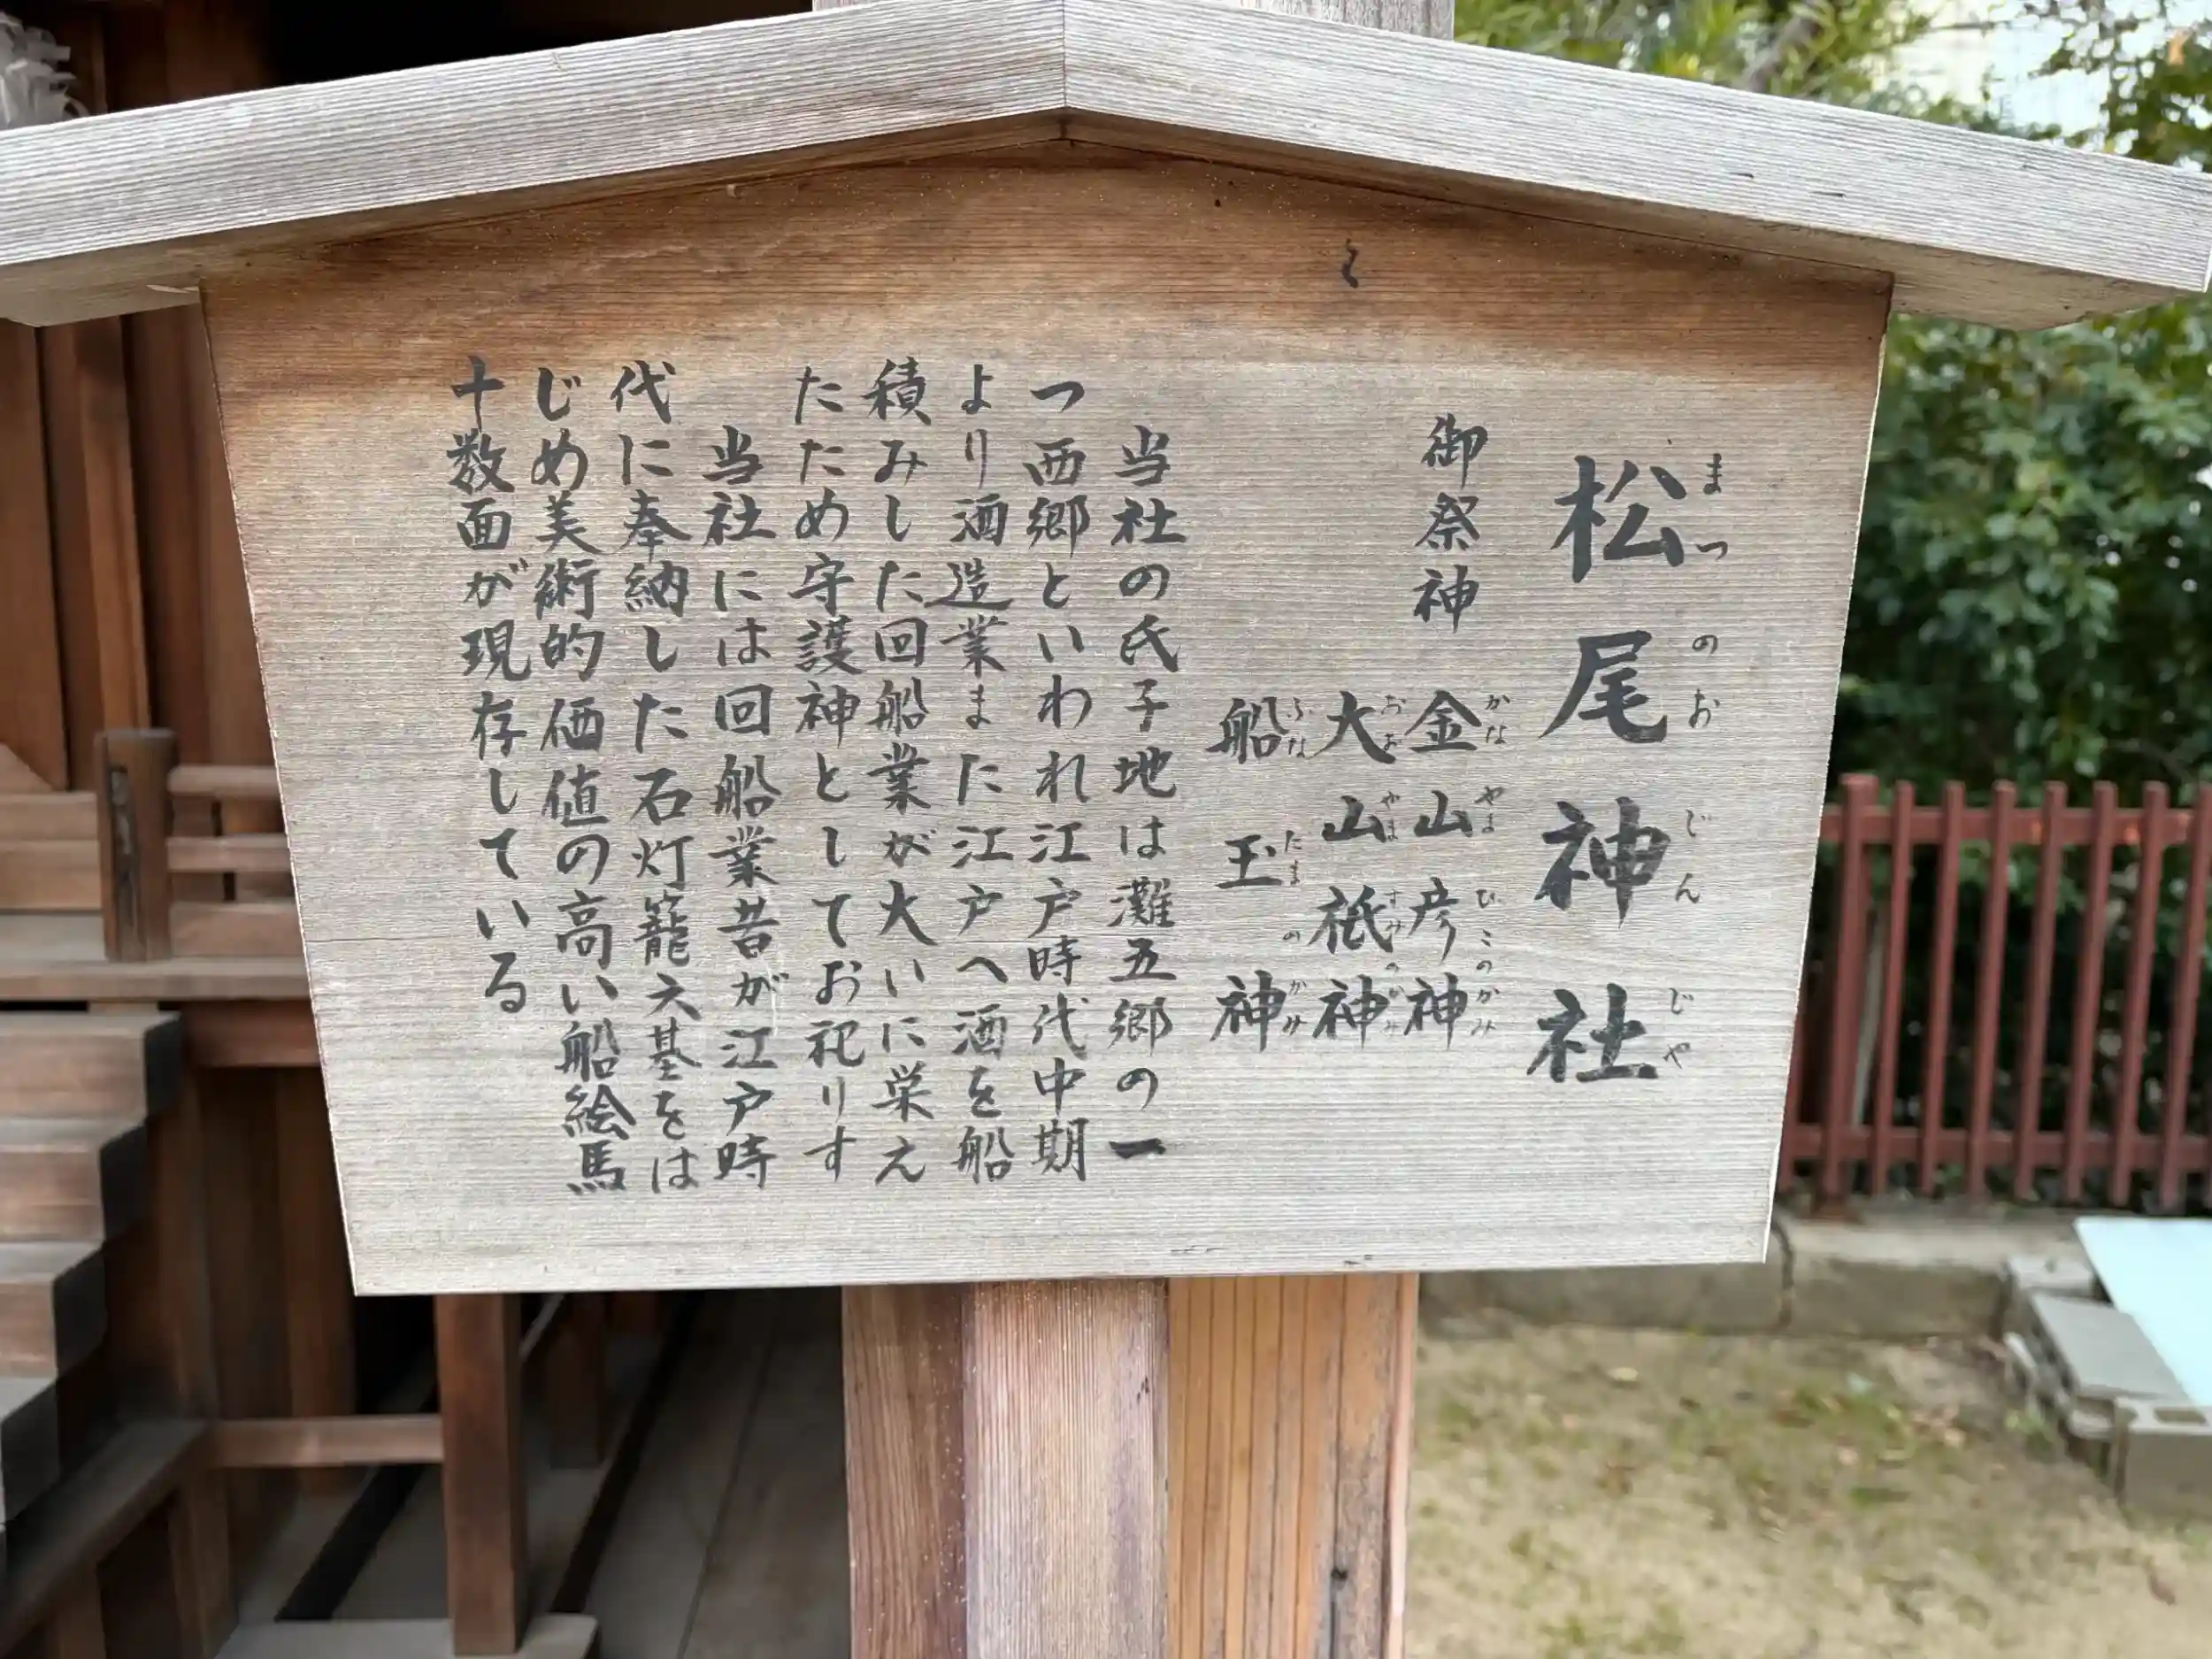 松尾神社
まつのおじんじゃ
御祭神
金山彦神
かなやまひこのかみ
大山祇神
おおやまずみのかみ
船玉神
ふなたまのかみ
当社の氏子地は灘五郷の一
つ西郷といわれ江戸時代中期
より酒造業また江戸へ酒を船
積みした回船業が大いに栄え
たため守護神としてお祀りす
当社には回船業昔が江戸時
代に奉納した石灯籠六基をは
じめ美術的価値の高い船絵馬
十数面が現存している